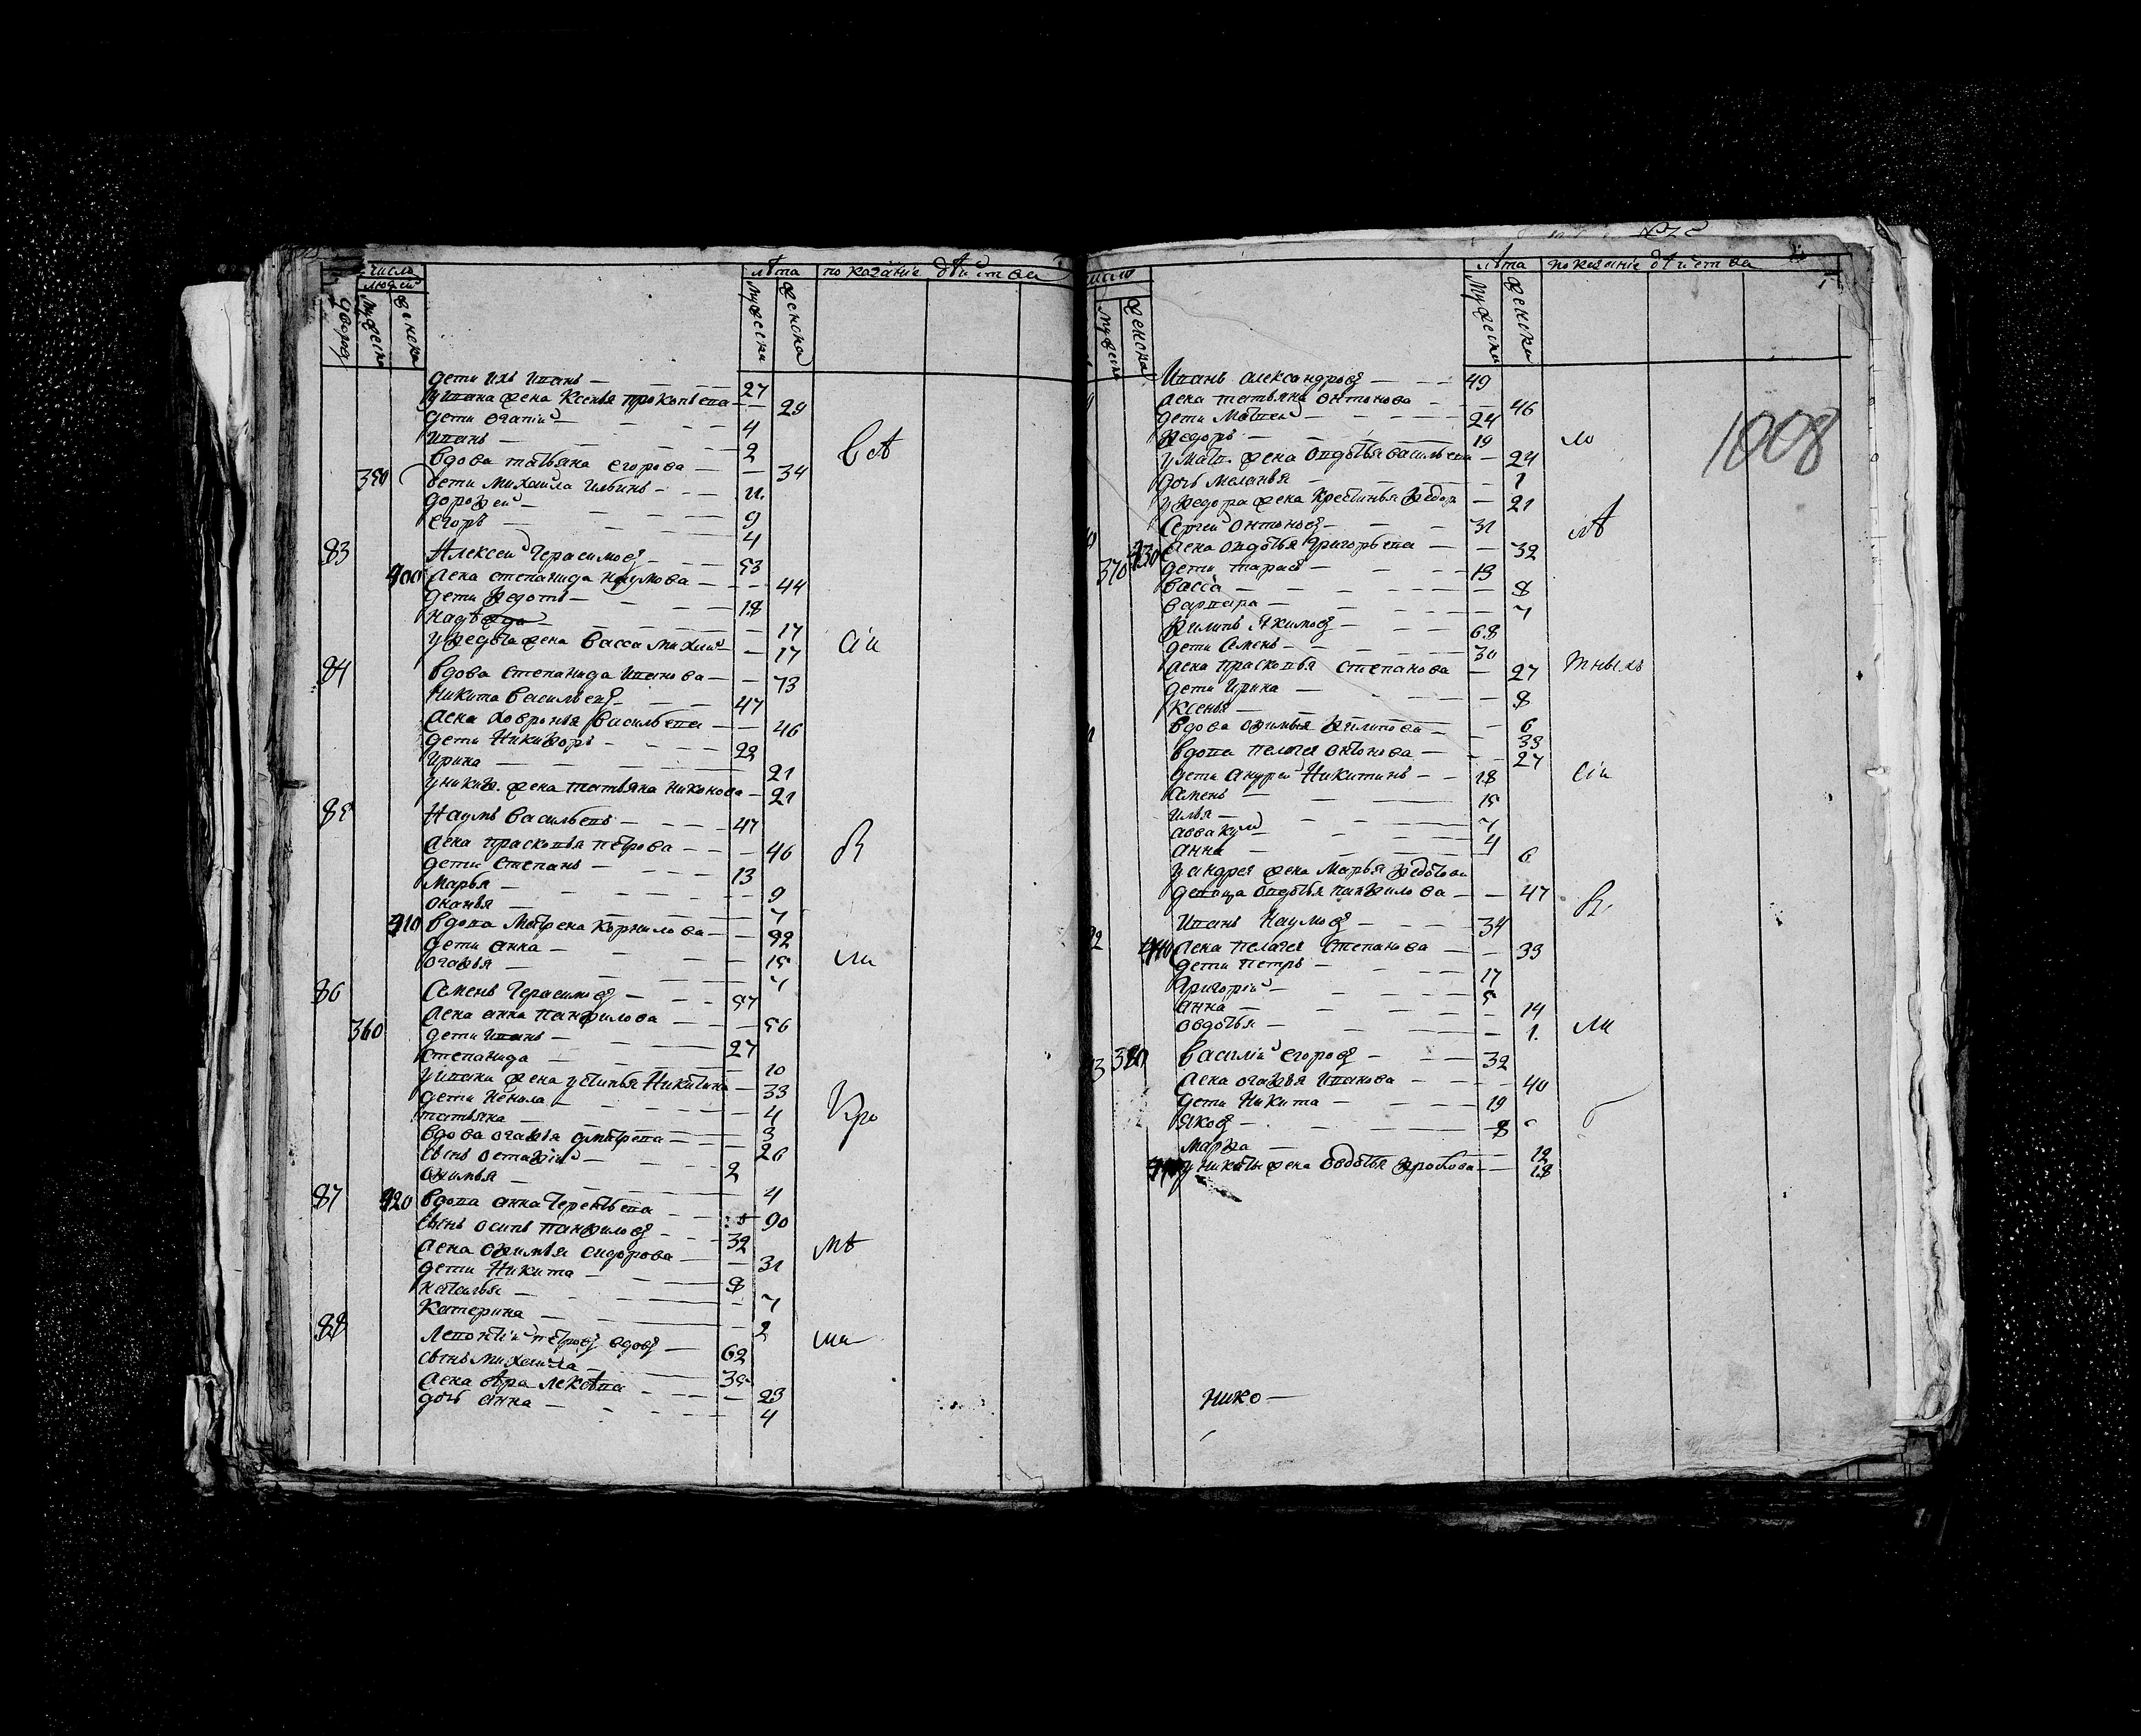 число
лѣта показаніе дѣйства
людей
дворов
мужеска
женска
мужеска
женска
дети ихъ иванъ 27
у ивана жена Ксенья прокопьева 29
дети 4
иванъ 2
Вдова татьяна егорова 34
350 дети михаила ильинъ 11
дорофей 9
егоръ 4
83 Алексей Герасимов 53
400 жена степанида наумова 44
дети Федотъ 18
надѣжда 17
у федота жена васса 17
84 Вдова степанида иванова 73
Никита васильев 47
жена ховронья васильева 46
дети Никифоръ 22
Ирина 21
у никиф. жена татьяна никонова 21
85 Наумъ васильевъ 47
жена прасковья петрова 46
дети степанъ 13
Марья 9
7
410 вдова Матрена корнилова 92
дети анна 15
агафья 7
86 Семенъ Герасимов 57
жена анна панфилова 56
360 дети иванъ 27
степанида 10
у ивана жена устинья Никитина 33
дети Ненила 4
татьяна 3
вдова агафья дмитрева 26
сынъ остафій 2
4
87 420 вдова анна терентьева 90
сынъ осипъ панфилов 32
жена офимья сидорова 31
дети Никита 8
наталья 7
катерина 2
88 Левонтій петров вдов 62
сынъ михаила 35
жена 23
дочь анна 4
Всѣ
сіи
В
ли
Кро
мѣ
ма
число
лѣта показаніе дѣйства
мужеска
женска
мужеска
женска
1008
Иванъ александров 49
жена татьяна антонова 46
дети Матвей 24
Федоръ 19
у матв. жена овдотья васильева 24
дочь меланья 1
у федора жена Крестинья федор 21
Сергей антонов 31
430 жена овдотья григорьева 32
370 дети тарас 13
васса 8
варвара 7
Филипъ Якимов 68
дети Семенъ 30
жена прасковья степанова 27
дети Ирина 8
Ксенья 6
вдова офимья филипова 33
вдова пелагея антонова 27
дети андрей Никитинъ 18
Семенъ 15
илья 7
аввакум 4
анна 6
у андрея жена Марья федотова
девица овдотья панфилова 47
Иванъ Наумов 34
440 жена пелагея степанова 33
дети петръ 17
Григорій 5
анна 14
овдотья 1
380 василій егоров 32
жена агафья иванова 40
дети Никита 19
Яков 8
Марфа 12
у никиты жена овдотья фролова 18
ло
лѣ
тныхъ
сіи
В
ли
Нико